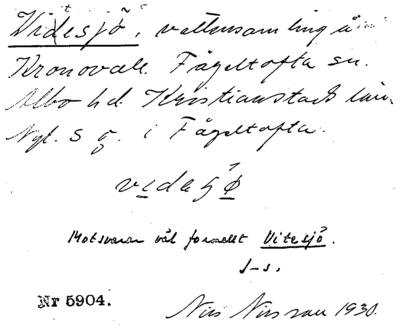 Vitesjö, vattensamling å
Kronovall. Fågeltofta sn.
Albo hd. Kristianstads län.
Nyl. S g. i Fågeltofta.
vidaʃø
Motsvarar väl formellt Vitesjö.
J-s.
Nr 5904.
Nils Nilsson 1930.